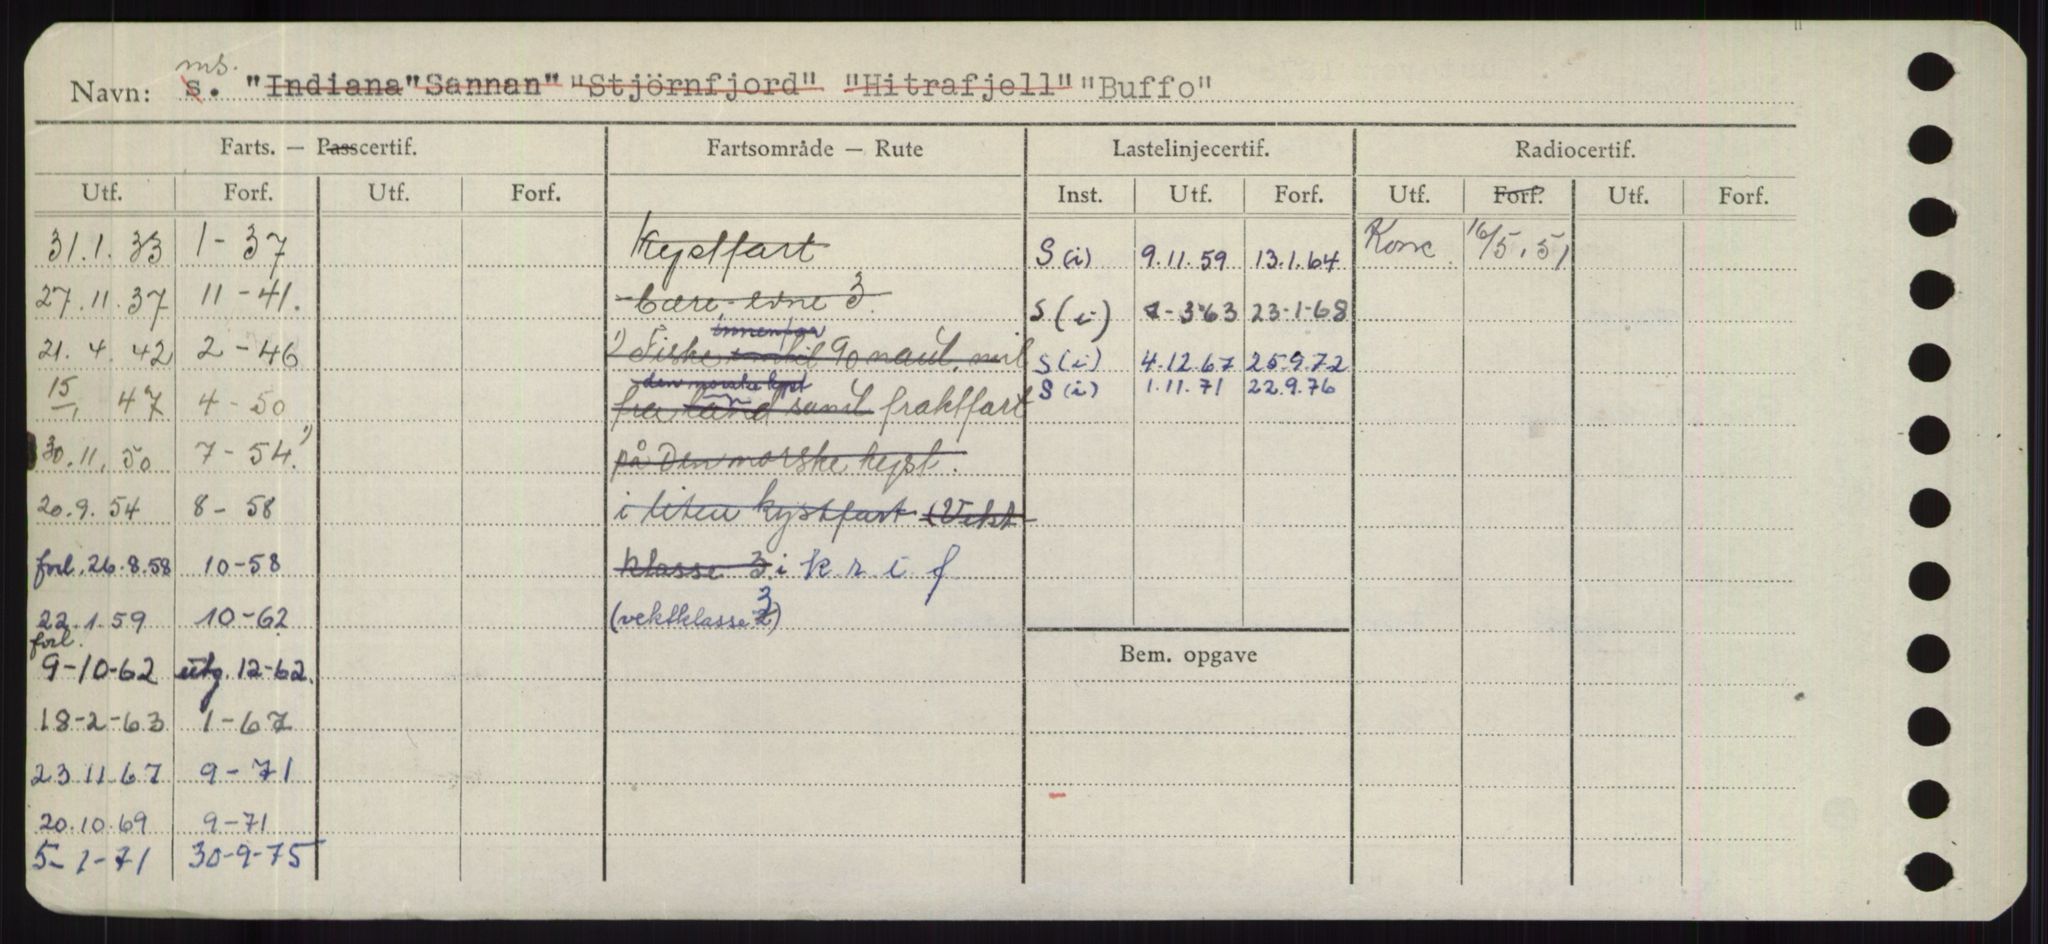 ms.
Navn: s. "Indiana" "Sannan" "Stjörnfjord" "Hitrafjell" "Buffo"
Farts. — Passcertif. Fartsområde — Rute Lastelinjecertif. Radiocertif.
Utf. Forf. Utf. Forf. Inst. Utf. Forf. Utf. Forf. Utf. Forf.
31.1.33 1-37 Kystfart S (i) 9.11.59 13.1.64 Konv. 16/5.51
27.11.37 11-41. bære-evne 3. S (i) 1-3-63 23-1-68
innenfor
21.4.42 2-46 1) Fiske inntil 90 naut. mil S (i) 4.12.67 25.9.72
den norske kyst S (i) 1.11.71 22.9.76
15/1 47 4-50 fra land samt fraktfart
30.11.50 7-54. 1) på Den norske kyst.
20.9.54 8-58 i liten kystfart (Vekt-
forl. 26.8.58 10-58 klasse 3. i k r i f
22.1.59 10-62 (vektklasse 3)
forl.
9-10-62 utg. 12-62.
18-2-63 1-67
Bem. opgave
23 11 67 9-71
20.10.69 9-71
5-1-71 30-9-75